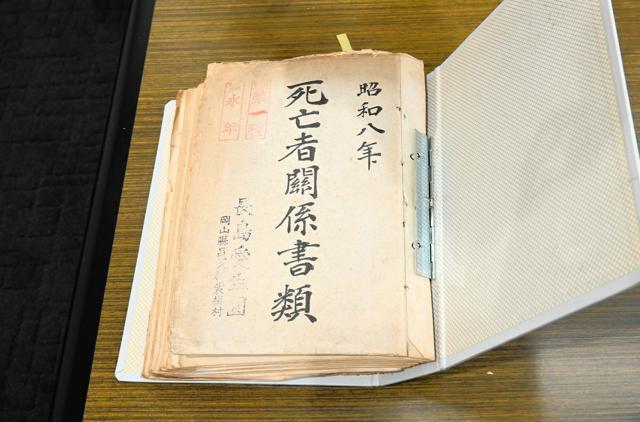 昭和八年
死亡者關係書類
第一種
永年
長島愛生園
岡山縣邑久郡裳掛村